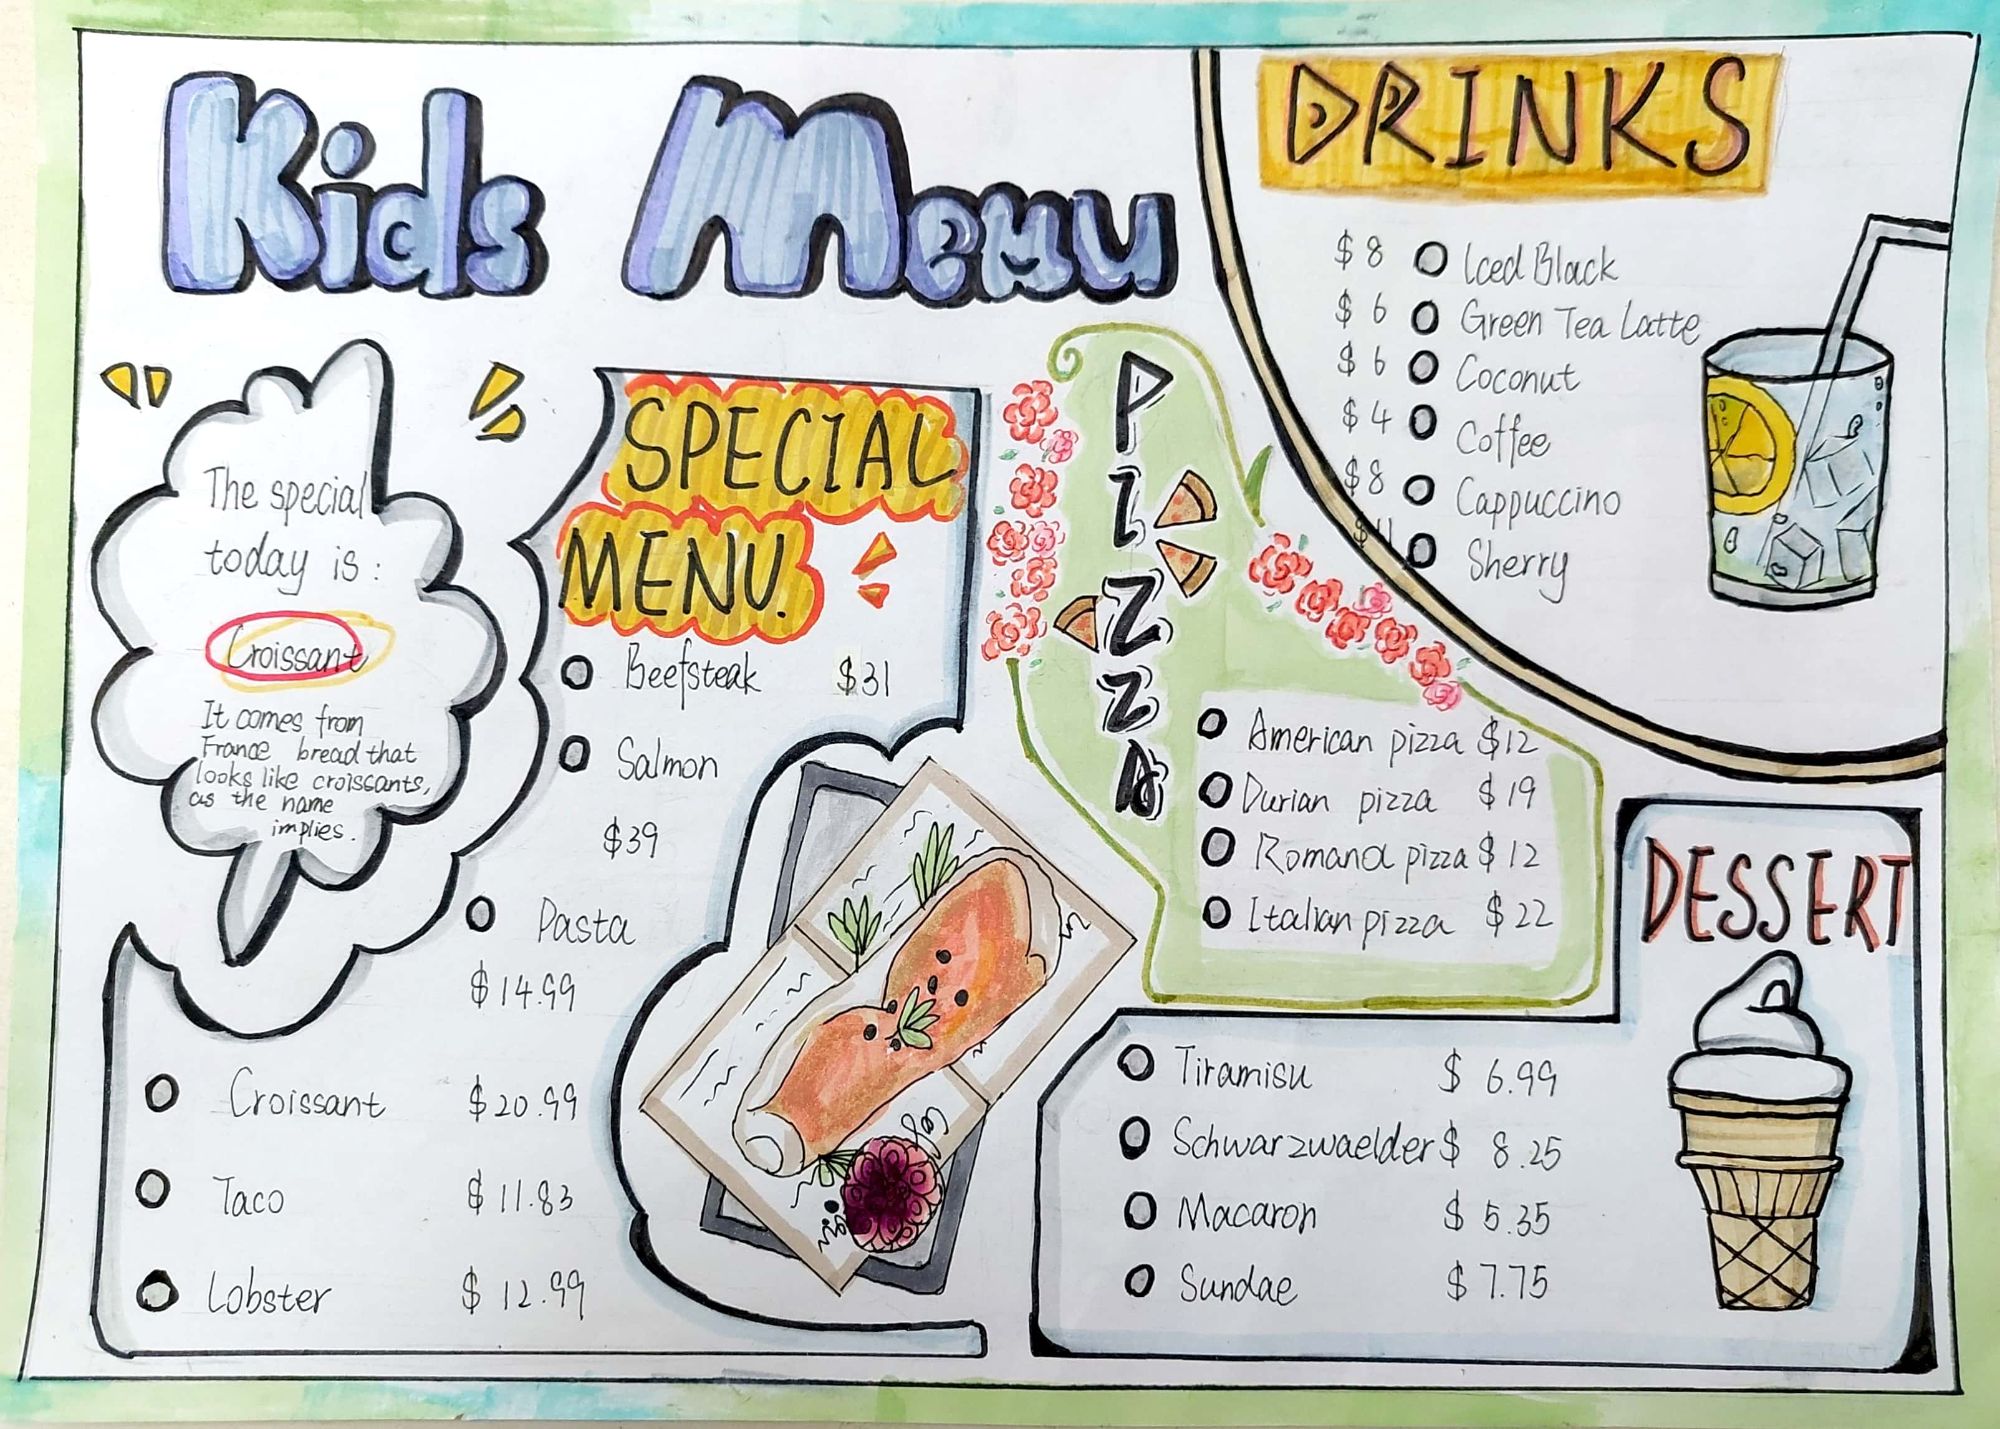 Kids Menu
The special
today is:
Croissant
It comes from
France bread that
looks like croissants,
as the name
implies.
SPECIAL
MENU.
Beefsteak $31
Salmon
$39
Pasta
$14.99
Croissant $20.99
Taco $11.83
Lobster $12.99
PIZZA
American pizza $12
Durian pizza $19
Romana pizza $12
Italian pizza $22
DRINKS
$8 Iced Black
$6 Green Tea Latte
$6 Coconut
$4 Coffee
$8 Cappuccino
Sherry
DESSERT
Tiramisu $6.99
Schwarzwaelder $8.25
Macaron $5.35
Sundae $7.75